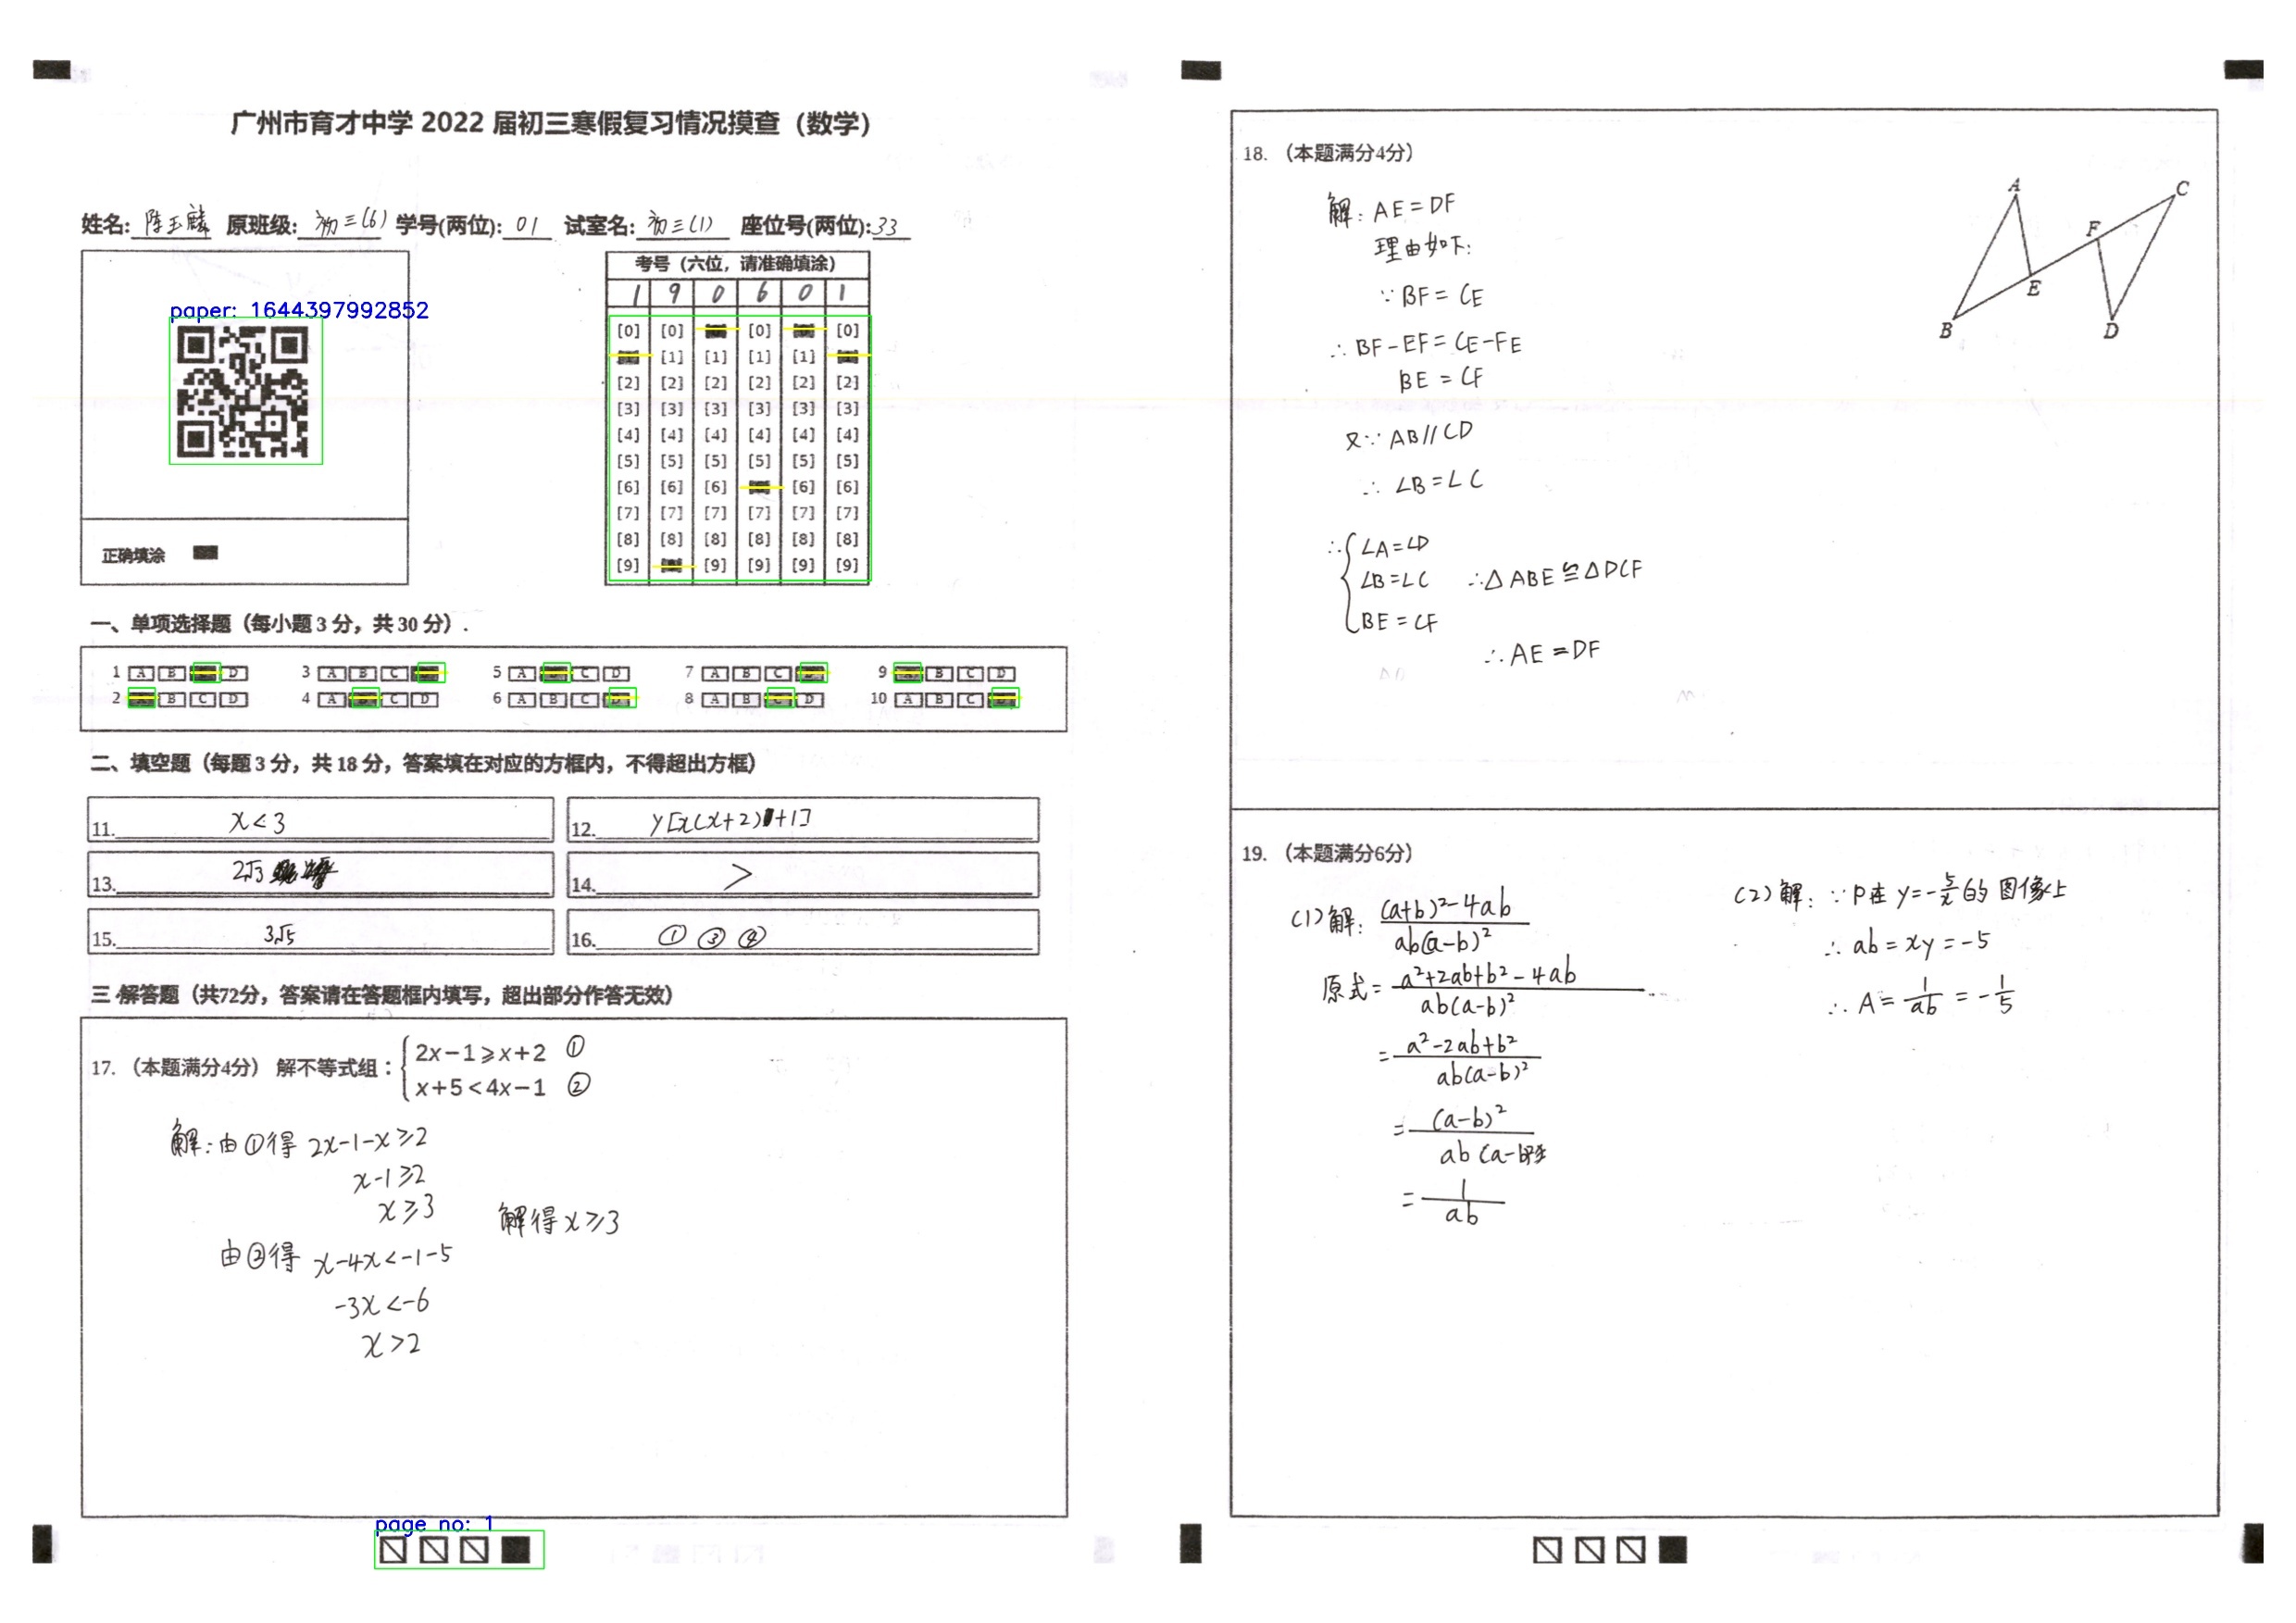 广州市育才中学 2022 届初三寒假复习情况摸查（数学）
姓名: 陈玉麟 原班级: 初三(6) 学号(两位): 01 试室名: 初三(1) 座位号(两位): 33
paper: 1644397992852
正确填涂
考号（六位，请准确填涂）
1 9 0 6 0 1
[0] [0] [0] [0]
[1] [1] [1] [1]
[2] [2] [2] [2] [2] [2]
[3] [3] [3] [3] [3] [3]
[4] [4] [4] [4] [4] [4]
[5] [5] [5] [5] [5] [5]
[6] [6] [6] [6] [6]
[7] [7] [7] [7] [7] [7]
[8] [8] [8] [8] [8] [8]
[9] [9] [9] [9] [9]
一、单项选择题（每小题 3 分，共 30 分）.
1 A B D 3 A B C 5 A C D 7 A B C 9 B C D
2 B C D 4 A C D 6 A B C 8 A B D 10 A B C
二、填空题（每题 3 分，共 18 分，答案填在对应的方框内，不得超出方框）
11. x<3
12. y[x(x+2)+1]
13. 2√3
14. >
15. 3√5
16. ①③④
三 解答题（共72分，答案请在答题框内填写，超出部分作答无效）
17. （本题满分4分） 解不等式组：
2x−1⩾x+2 ①
x+5<4x−1 ②
解: 由①得 2x-1-x≥2
x-1≥2
x≥3
解得 x≥3
由②得 x-4x<-1-5
-3x<-6
x>2
page no: 1
18. （本题满分4分）
A
C
F
E
B
D
解: AE=DF
理由如下:
∵BF=CE
∴BF-EF=CE-FE
BE=CF
又∵AB//CD
∴∠B=∠C
∴{∠A=∠D
∠B=∠C ∴△ABE≌△DCF
BE=CF
∴AE=DF
19. （本题满分6分）
(1)解: (a+b)²-4ab / ab(a-b)²
原式= a²+2ab+b²-4ab / ab(a-b)²
= a²-2ab+b² / ab(a-b)²
= (a-b)² / ab(a-b)²
= 1 / ab
(2)解: ∵P在 y=-5/x 的图像上
∴ab=xy=-5
∴A=1/ab=-1/5